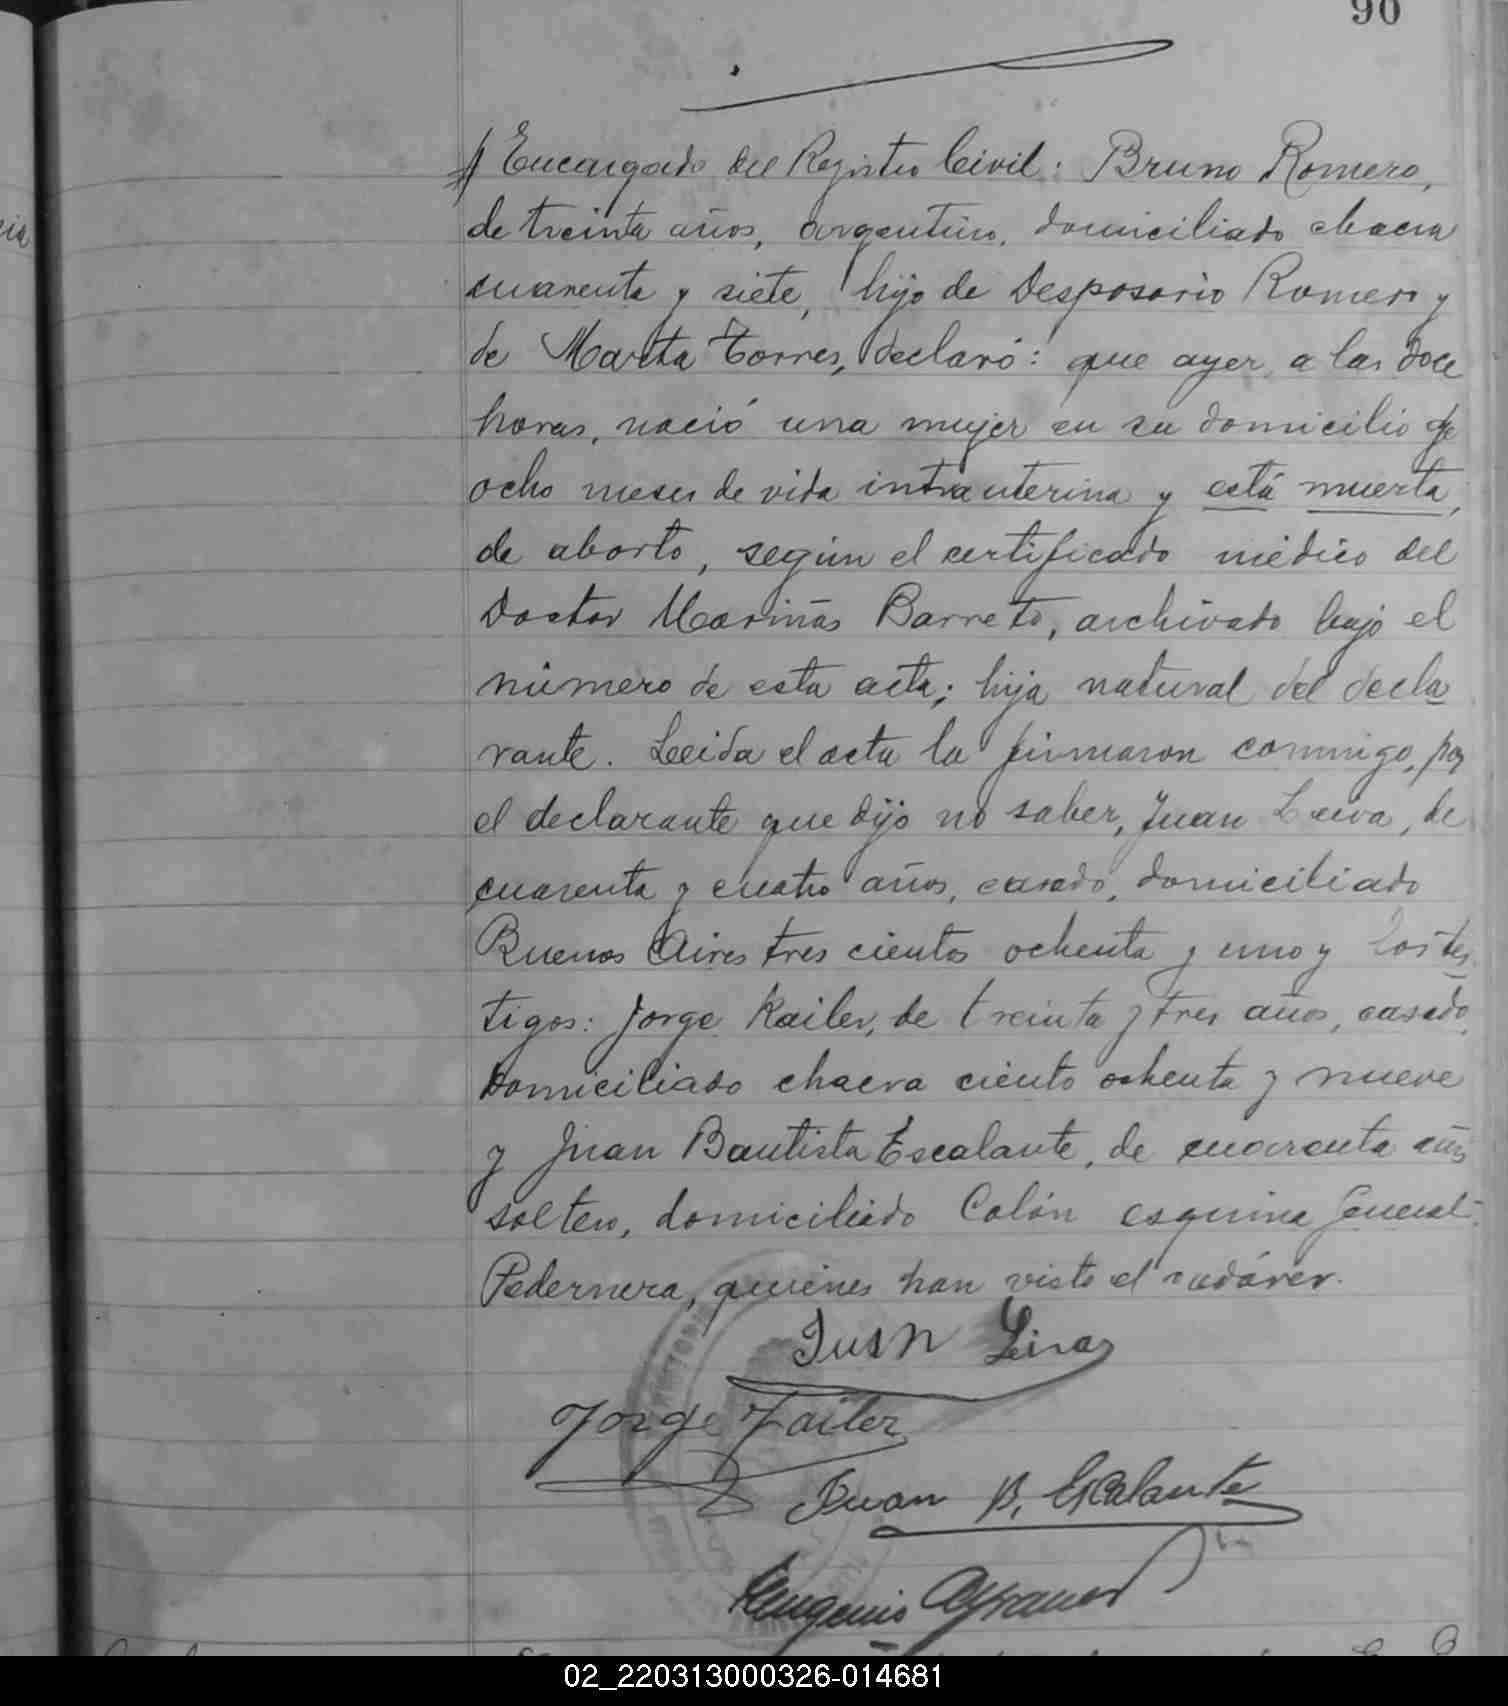 90
Encargado del Registro Civil: Bruno Romero,
de treinta años, argentino, domiciliado chacra
cuarenta y siete, hijo de Desposorio Romero y
de Marta Torres, declaró: que ayer, a las doce
horas, nació una mujer en su domicilio de
ocho meses de vida intrauterina y está muerta,
de aborto, según el certificado médico del
Doctor Mariñas Barreto, archivado bajo el
número de esta acta; hija natural del decla
rante. Leida el acta la firmaron conmigo, por
el declarante que dijo no saber, Juan Leiva, de
cuarenta y cuatro años, casado, domiciliado
Buenos Aires tres cientos ochenta y uno y los tes
tigos: Jorge Kailer, de treinta y tres años, casado,
domiciliado chacra ciento ochenta y nueve
y Juan Bautista Escalante, de cuarenta años
soltero, domiciliado Colón esquina General
Pedernera, quienes han visto el cadáver.
Juan
Jorge
Juan B. Escalante
Eugenio
02_220313000326-014681